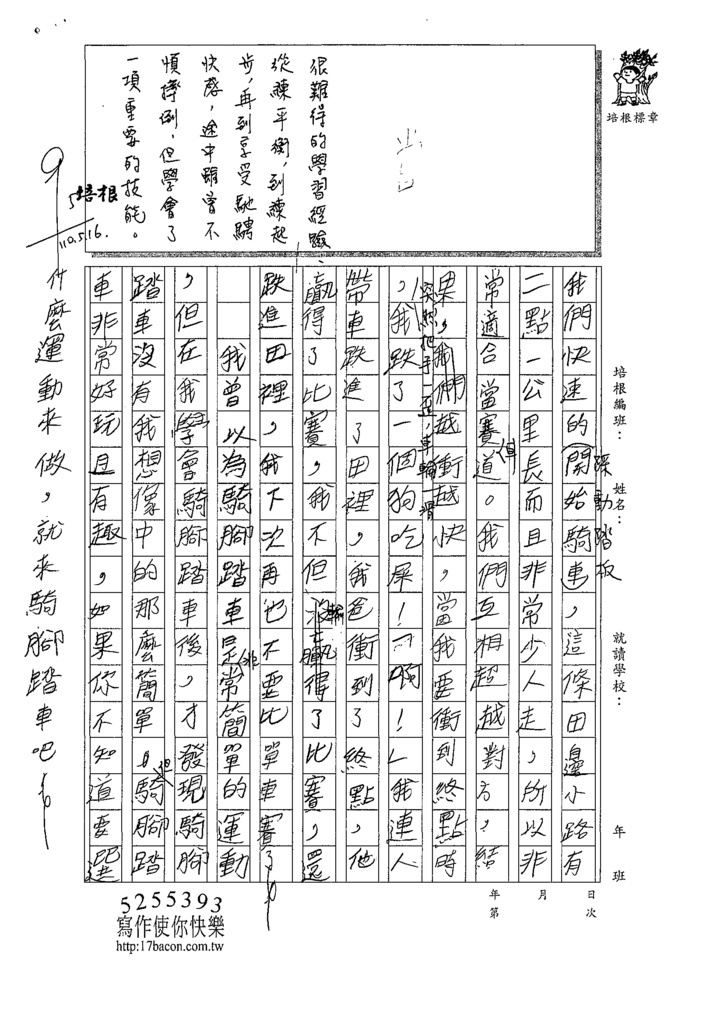 培根標章
很難得的學習經驗：
從練平衡，到練起
步，再到享受馳騁
快感，途中雖曾不
慎摔倒，但學會了
一項重要的技能。
培根
110.5.16.
培根編班：
姓名：
就讀學校：
年
班
我們快速的開始騎車，這條田邊小路有
踩動踏板
二點一公里長而且非常少人走，所以非
常適合當賽道。我們互相超越對方，結
但
果，我們越衝越快，當我要衝到終點時
突然把手一歪，車輪一滑
，我跌了一個狗吃屎！「啊！」我連人
帶車跌進了田裡，我爸衝到了終點，他
贏得了比賽，我不但沒贏得了比賽，還
輸
跌進田裡，我下次再也不要比單車賽了
我曾以為騎腳踏車是常簡單的運動
非
，但在我學會騎腳踏車後，才發現騎腳
踏車沒有我想像中的那麼簡單，且騎腳踏
但
車非常好玩且有趣，如果你不知道要選
什麼運動來做，就來騎腳踏車吧
年
月
日
第
次
5255393
寫作使你快樂
http:17bacon.com.tw